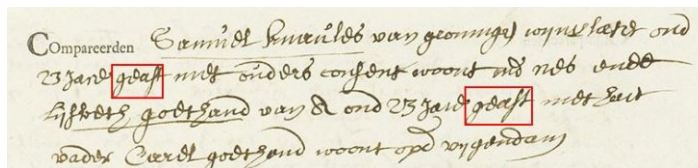 Compareerden Samuel Knaules van groninge wijnvlater oud
23 Jare geast met ouders consent woont inds nes ende
Lijsbeth goethand van A oud 23 Jare geast met haer
vader Carel goethand woont opd vijgendam